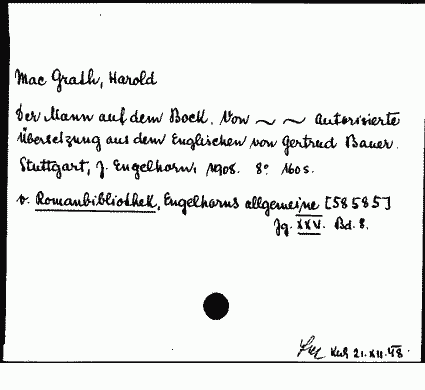 Mac Grath, Harold
Der Mann auf dem Bock. Von ~ ~ Autorisierte
Übersetzung aus dem Englischen von Gertrud Bauer.
Stuttgart, J. Engelhorn, 1908. 8° 160 S.
v. Romanbibliothek, Engelhorns allgemeine [58585]
Jg. XXV. Bd. 8.
21.XII.48.